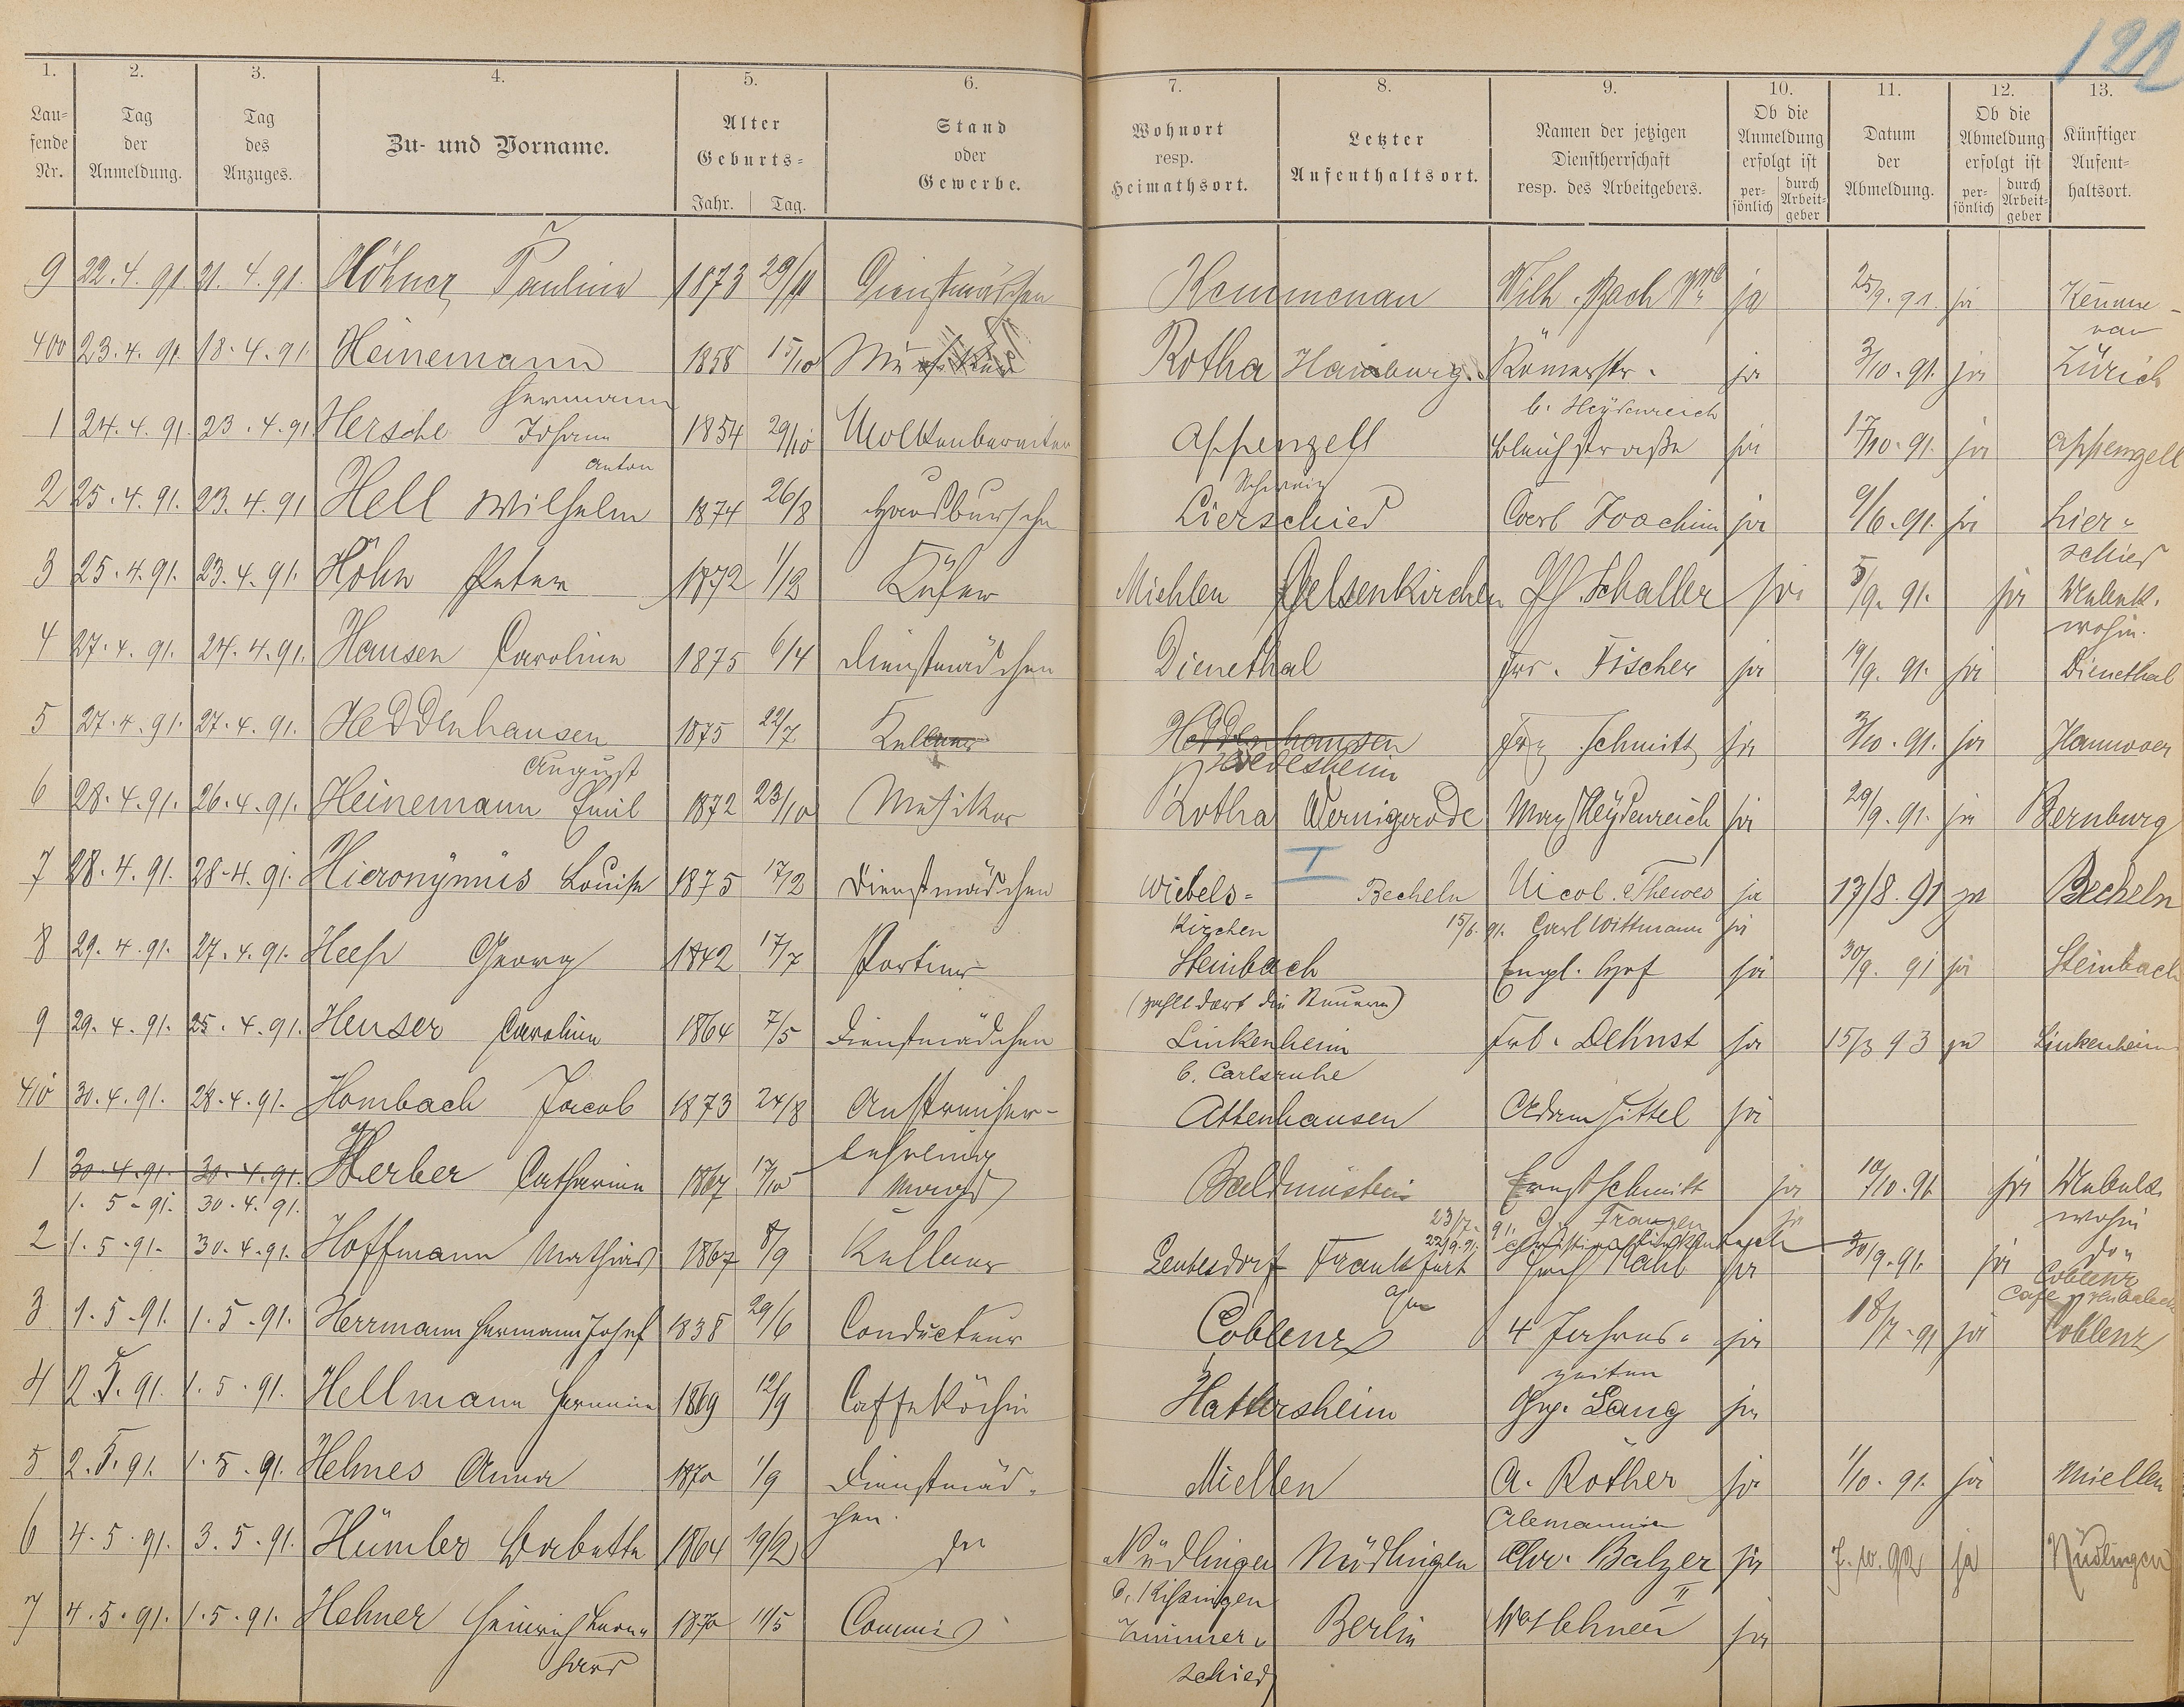 122
1. 2. 3. 4. 5. 6. 7. 8. 9. 10. 11. 12. 13.
Lau=
fende
Nr.
Tag
der
Anmeldung.
Tag
des
Anzuges.
Zu- und Vorname.
Alter
Geburts=
Jahr. Tag.
Stand
oder
Gewerbe.
Wohnort
resp.
Heimathsort.
Letzter
Aufenthaltsort.
Namen der jetzigen
Dienstherrschaft
resp. des Arbeitgebers.
Ob die
Anmeldung
erfolgt ist
per-
sönlich
durch
Arbeit-
geber
Datum
der
Abmeldung.
Ob die
Abmeldung
erfolgt ist
per-
sönlich
durch
Arbeit-
geber
Künftiger
Aufent-
haltsort.
9 22.4.91. 21.4.91. Höhner Pauline 1873 29/11 Dienstmädchen Kemmenau Wilh. Bach ja 25/9.91. ja Kemme-
nau
400 23.4.91. 18.4.91. Heinemann 1858 15/10 Musiker Rotha Hamburg. Römerstr. ja 3/10.91. ja Zürich
Hermann b. Heydenreich
1 24.4.91. 23.4.91 Hersche Johann 1854 29/10 Molkenbereiter Appenzell Bleichstraße ja 17/10.91. ja Appenzell
Anton Schweiz
2 25.4.91. 23.4.91 Hell Wilhelm 1874 26/8 Hausbursche Lierschied Carl Joachim ja 9/6.91. ja Lier-
schied
3 25.4.91. 23.4.91. Höhn Peter 1872 1/12 Küfer Miehlen Gelsenkirchen Schaller ja 5/9.91. ja Unbek.
wohin.
4 27.4.91. 24.4.91. Hansen Caroline 1875 6/4 Dienstmädchen Dienethal Fischer ja 19/9.91. ja Dienethal
5 27.4.91. 27.4.91. Heddenhausen 1875 22/7 Kellner Heddenhausen Schmitt ja 3/10.91. ja Hannover
August
6 28.4.91. 26.4.91. Heinemann Emil 1872 23/10 Musiker Rotha Wernigerode Max Heydenreich ja 29/9.91. ja Bernburg
I
7 28.4.91. 28.4.91. Hieronymus Louise 1875 17/2 Dienstmädchen Wiebels= Becheln Nicol. Thewes ja 17/8.91 ja Becheln
kirchen 15/6.91. Carl Wittmann ja
8 29.4.91. 27.4.91. Georg 1842 17/7 Portier Steinbach Engl. Hof ja 30/9.91 ja Steinbach
(zahlt dort die Steuern)
9 29.4.91. 25.4.91. Heuser Caroline 1864 7/5 Dienstmädchen Linkenheim ja 15/3 93 ja Linkenheim
b. Carlsruhe
410 30.4.91. 28.4.91. Hombach Jacob 1873 24/8 Anstreicher- Attenhausen Adam Hittel ja
lehrling
1 30.4.91. 30.4.91. Herber Catharina 1867 17/10 Magd Balduinstein Ernst Schmitt ja 10/10.91 ja Unbek.
1.5-91. 30.4.91. wohin
23/7.91. Franzen ja
22/9.91.
2 1.5.91. 30.4.91. Hoffmann Mathias 1867 8/9 Kellner Leutesdorf Frankfurt ja 30/9.91. ja Coblenz
3 1.5.91. 1.5.91. Herrmann Hermann Josef 1838 29/6 Conducteur Coblenz 4 Jahres- ja 18/7.91 ja Coblenz
zeiten
4 2.5.91. 1.5.91. Hellmann Hermine 1869 12/9 Caffeköchin Hattersheim Lang ja
5 2.5.91. 1.5.91. Helmes Anna 1870 1/9 Dienstmäd- Miellen A. Röther ja 1/10.91. ja Miellen
chen. Alemannia
6 4.5.91. 3.5.91. Hümler Babette 1864 19/2 do Nüdlingen Nüdlingen Chr. Balzer ja 7.10.92 ja Nüdlingen
b. Kissingen II
7 4.5.91. 1.5.91. Hehner Heinrich 1870 11/5 Commis Zimmer- Berlin Hehner ja
schied